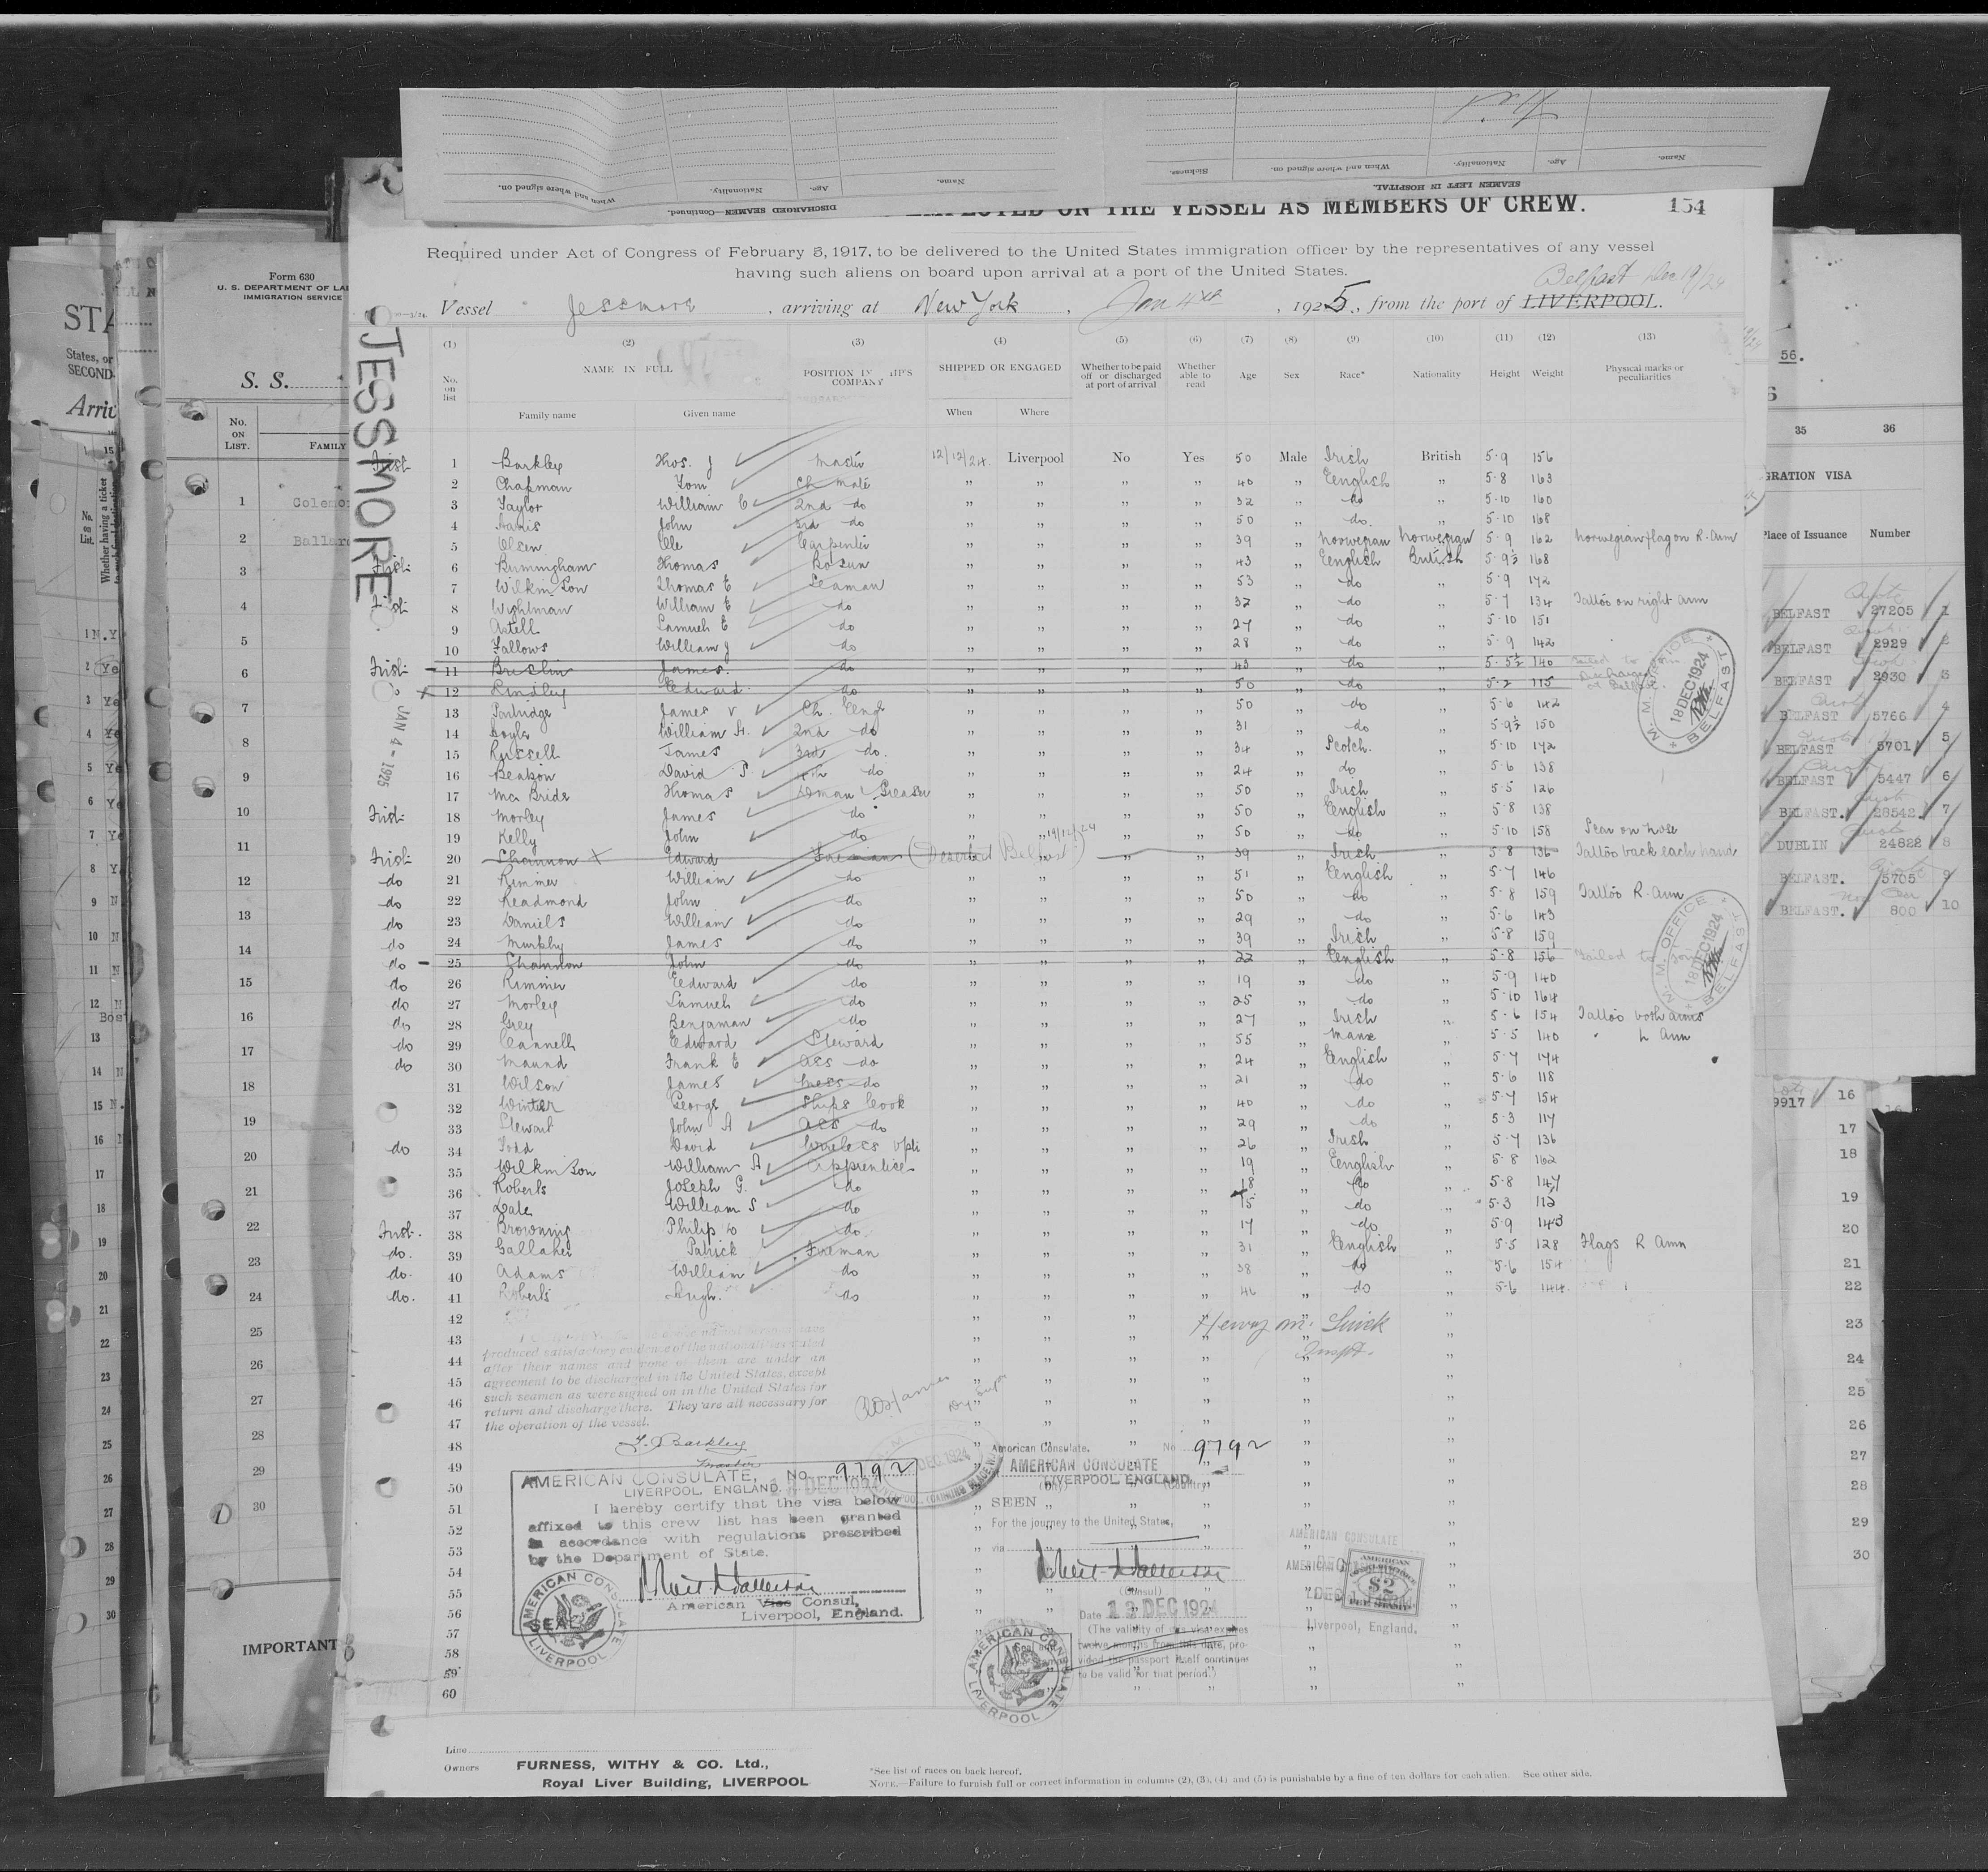 DISCHARGED SEAMEN—Continued.
SEAMEN LEFT IN HOSPITAL.
Name.
Age.
Nationality.
When and where signed on.
Sickness.
ON THE VESSEL AS MEMBERS OF CREW.
154
Required under Act of Congress of February 5, 1917, to be delivered to the United States immigration officer by the representatives of any vessel
having such aliens on board upon arrival at a port of the United States.
Belfast Dec 19/24
Vessel Jessmore, arriving at New York, Jan 4th, 1925, from the port of LIVERPOOL.
JESSMORE
JAN 4-1925
(1) (2) (3) (4) (5) (6) (7) (8) (9) (10) (11) (12) (13)
No. on list
NAME IN FULL
Family name Given name
POSITION IN SHIP'S COMPANY
SHIPPED OR ENGAGED
When Where
Whether to be paid off or discharged at port of arrival
Whether able to read
Age Sex Race* Nationality Height Weight
Physical marks or peculiarities
1 Barkley Thos. J Master 12/12/24. Liverpool No Yes 50 Male Irish British 5-9 156
2 Chapman Tom Ch mate " " " " 40 " English " 5-8 163
3 Taylor William E 2nd do " " " " 32 " do " 5-10 160
4 John 3rd do " " " " 50 " do. " 5-10 168
5 Olsen Ole Carpenter " " " " 39 " Norwegian Norwegian 5-9 162 Norwegian flag on R. Arm
6 Birmingham Thomas Bosun " " " " 43 " English British 5-9½ 168
7 Wilkinson Thomas E Seaman " " " " 53 " do " 5-9 172
8 Wightman William E do " " " " 37 " do " 5-7 134 Tattoo on right arm
9 Astell Samuel E do " " " " 27 " do " 5-10 151
10 Fallows William J do " " " " 28 " do " 5-9 142
11 Breslin James do " " " " 43 " do " 5-5½ 140 Failed to join
12 Lindley Edward do " " " " 50 " do " 5-2 115 Discharged at Belfast.
13 Partridge James V Ch. Eng " " " " 50 " do " 5-6 142
14 Doyle William H. 2nd do " " " " 31 " do " 5-9½ 150
15 Russell James 3rd do. " " " " 34 " Scotch. " 5-10 172
16 Beakon David P. 4th do " " " " 24 " do " 5-6 138
17 McBride Thomas Dman & Greaser " " " " 50 " Irish " 5-5 126
18 Morley James do " " " " 50 " English " 5-8 138
19 Kelly John do " " " " 50 " do " 5-10 158 Scar on nose
20 Shannon X Edward Fireman (Deserted Belfast 19/12/24) " " 39 " Irish " 5-8 136 Tattoo back each hand
21 Rimmer William do " " " " 51 " English " 5-7 146
22 Readmond John do " " " " 50 " do " 5-8 159 Tattoo R. Arm
23 Daniels William do " " " " 29 " do " 5-6 143
24 Murphy James do " " " " 39 " Irish " 5-8 159
25 Shannon John do " " " " 22 " English " 5-8 156 Failed to join
26 Rimmer Edward do " " " " 19 " do " 5-9 140
27 Morley Samuel do " " " " 25 " do " 5-10 164
28 Grey Benjaman do " " " " 27 " Irish " 5-6 154 Tattoo both arms
29 Cannell Edward Steward " " " " 55 " Manx " 5-5 140 " L Arm
30 Maund Frank E ass do " " " " 24 " English " 5-7 174
31 Wilson James Mess do " " " " 21 " do " 5-6 118
32 Winter George Ships Cook " " " " 40 " do " 5-7 154
33 Stewart John A ass do " " " " 29 " do " 5-3 117
34 Todd David Wireless Opti " " " " 26 " Irish " 5-7 136
35 Wilkinson William A Apprentice " " " " 19 " English " 5-8 162
36 Roberts Joseph G. do " " " " 18 " do " 5-8 147
37 Dale William S do " " " " 15 " do " 5-3 112
38 Browning Philip W do " " " " 17 " do " 5-9 143
39 Gallaher Patrick Fireman " " " " 31 " English " 5-5 128 Flags R Arm
40 Adams William do " " " " 38 " do " 5-6 154
41 Roberts Hugh. do " " " " 46 " do " 5-6 144
42
43
44
45
46
47
48
49
50
51
52
53
54
55
56
57
58
59
60
Henry M.
Inspt.
produced satisfactory evidence of the nationalities stated
after their names and none of them are under an
agreement to be discharged in the United States, except
such seamen as were signed on in the United States for
return and discharge there. They are all necessary for
the operation of the vessel.
T. Barkley
Master
M. M. OFFICE
18 DEC 1924
BELFAST
M. M. OFFICE
18 DEC 1924
BELFAST
AMERICAN CONSULATE, No. 9792
LIVERPOOL, ENGLAND. 12 DEC 1924
I hereby certify that the visa below
affixed to this crew list has been granted
in accordance with regulations prescribed
by the Department of State.
American Vice Consul,
Liverpool, England.
SEAL
AMERICAN CONSULATE LIVERPOOL
American Consulate. No 9792
AMERICAN CONSULATE
LIVERPOOL ENGLAND.
(City) (Country)
SEEN
For the journey to the United States,
via
(Consul)
Date 12 DEC 1924
(The validity of this visa expires
twelve months from this date, pro-
vided the passport itself continues
to be valid for that period.)
AMERICAN CONSULATE LIVERPOOL
AMERICAN CONSULATE
AMERICAN
$2
FEE STAMP
Liverpool, England.
Line
Owners FURNESS, WITHY & CO. Ltd.,
Royal Liver Building, LIVERPOOL
*See list of races on back hereof.
NOTE.—Failure to furnish full or correct information in columns (2), (3), (4) and (5) is punishable by a fine of ten dollars for each alien. See other side.
Form 630
U. S. DEPARTMENT OF LA
IMMIGRATION SERVICE
S. S.
No. ON LIST.
FAMILY
1 Colemo
2 Ballar
IMPORTANT
STA
States, or
SECOND
Whether having a ticket
56.
35 36
GRATION VISA
Place of Issuance Number
BELFAST 27205 1
BELFAST 2929 2
BELFAST 2930 3
BELFAST 5766 4
BELFAST 5701 5
BELFAST 5447 6
BELFAST. 28542 7
DUBLIN 24822 8
BELFAST. 5705 9
BELFAST. 800 10
9917 16
17
18
19
20
21
22
23
24
25
26
27
28
29
30